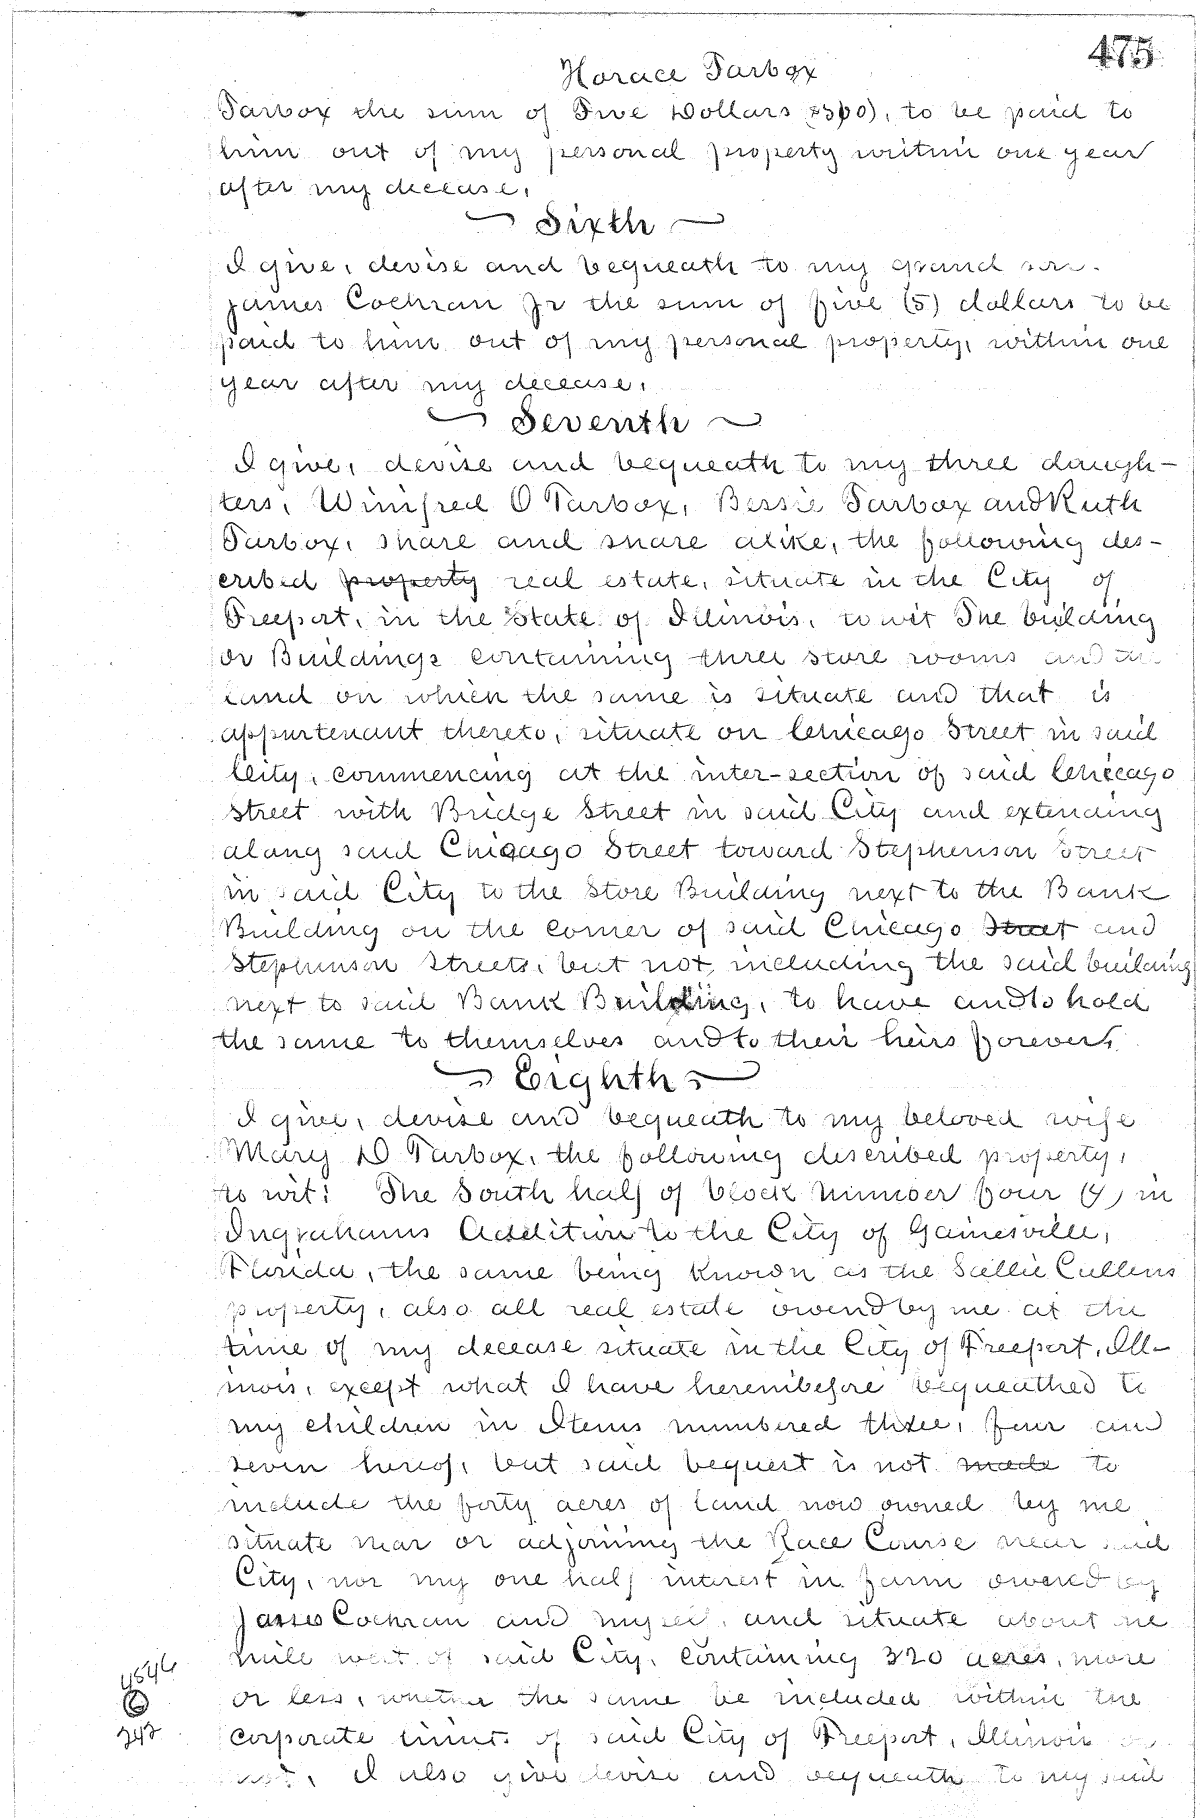 475
Horace Tarbox
Tarbox the sum of Five Dollars $500), to be paid to
him out of my personal property within one year
after my decease,
Sixth
I give, devise and bequeath to my grand son.
James Cochran Jr the sum of five (5) dollars to be
paid to him out of my personal property, within one
year after my decease,
Seventh
I give, devise and bequeath to my three daugh-
ters, Winifred O Tarbox, Bessie Tarbox and Ruth
Tarbox, share and share alike, the following des-
cribed property real estate, situate in the City of
Freeport, in the State of Illinois, to wit The building
or Buildings containing three store rooms and the
land on which the same is situate and that is
appurtenant thereto, situate on Chicago Street in said
City, commencing at the inter-section of said Chicago
Street with Bridge Street in said City and extending
along said Chicago Street toward Stephenson Street
in said City to the Store Building next to the Bank
Building on the corner of said Chicago Street and
Stephenson Streets, but not including the said building
next to said Bank Building, to have and to hold
the same to themselves and to their heirs forever,
Eighth
I give, devise and bequeath to my beloved wife
Mary D Tarbox, the following described property,
to wit: The South half of block number four (4) in
Ingrahams Addition to the City of Gainesville,
Florida, the same being known as the Sallie Cullens
property, also all real estate owend by me at the
time of my decease situate in the City of Freeport, Ill-
inois, except what I have hereinbefore bequeathed to
my children in Items numbered three, four and
seven hereof, but said bequest is not made to
include the forty acres of land now owned by me
situate near or adjoining the Race Course near said
City, nor my one half interest in farm owened by
James Cochran and myself, and situate about one
mile west of said City, containing 320 acres, more
or less, whether the same be included within the
corporate limits of said City of Freeport, Illinois or
not, I also give devise and bequeath to my said
4546
6
242